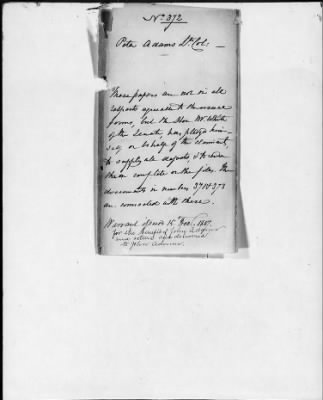 No. 372
Peter Adams Lt Col:
These papers are not in all
respects agreeable to the
forms, but the Hon Mr. White
of the Senate, has pledged him-
self on behalf of the claimant,
to supply all defects, & to
them complete on the files. The
documents in number 371 & 373
are connected with these.
Warrant issued 15
for the benefit of John Adams
and others
to John Adams.